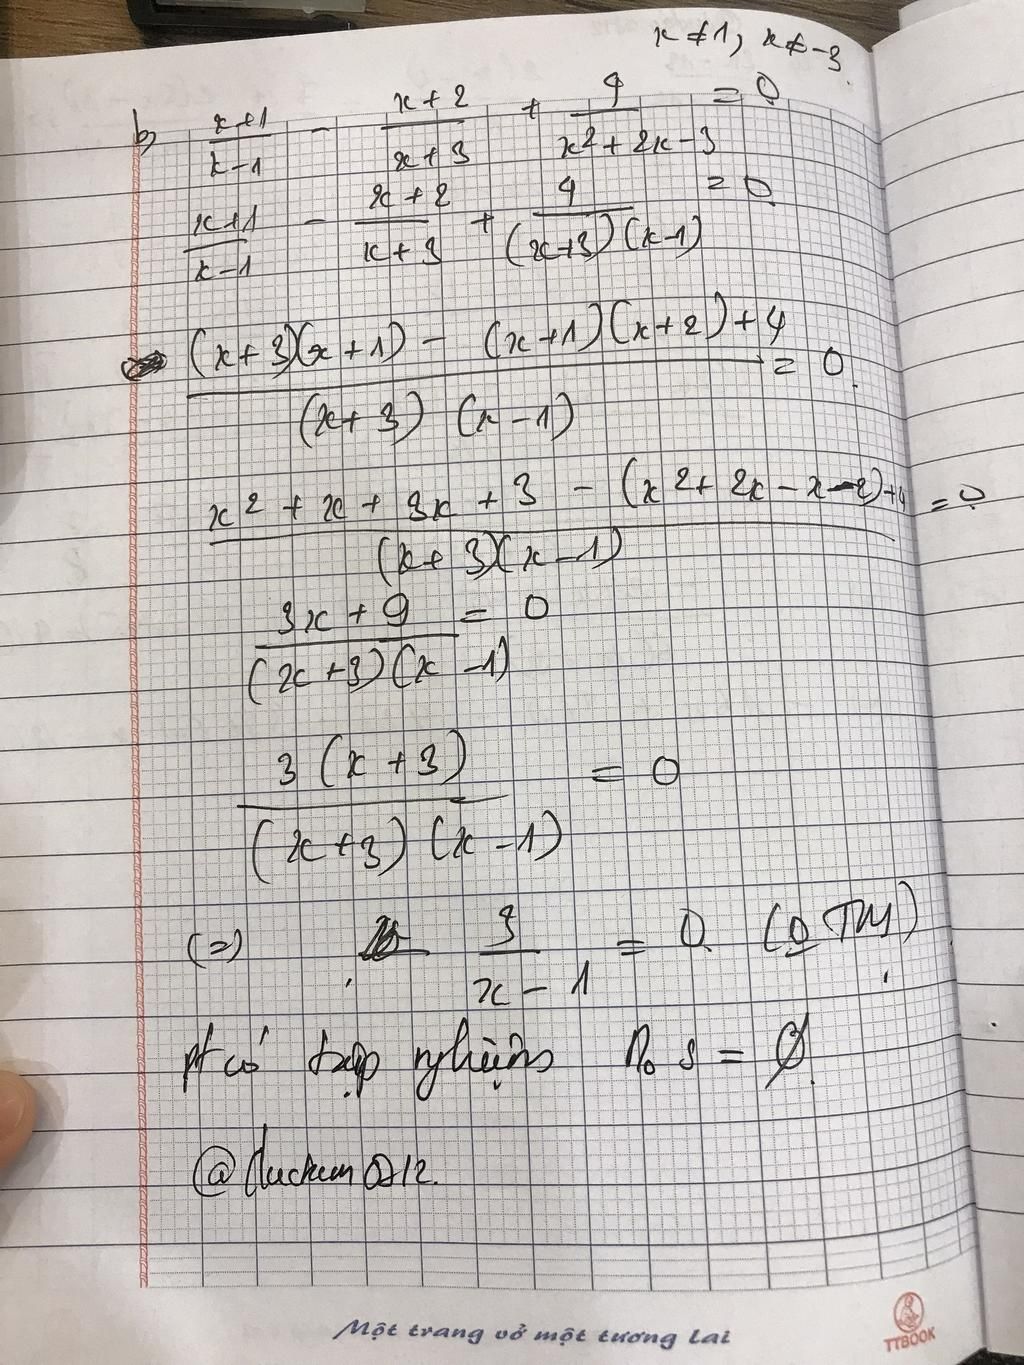 x ≠ 1, x ≠ -3.
b) \frac{x+1}{x-1} - \frac{x+2}{x+3} + \frac{4}{x2+2x-3} = 0
\frac{x+1}{x-1} - \frac{x+2}{x+3} + \frac{4}{(x+3)(x-1)} = 0
\frac{(x+3)(x+1) - (x+1)(x+2)+4}{(x+3)(x-1)} = 0.
\frac{x2 + x + 3x + 3 - (x2+2x-x-2)+4}{(x+3)(x-1)} = 0
\frac{3x+9}{(x+3)(x-1)} = 0
\frac{3(x+3)}{(x+3)(x-1)} = 0
(=) \frac{3}{x-1} = 0. (0 TM)
pt có tập nghiệm S = Ø.
Một trang vở một tương lai
TTBOOK